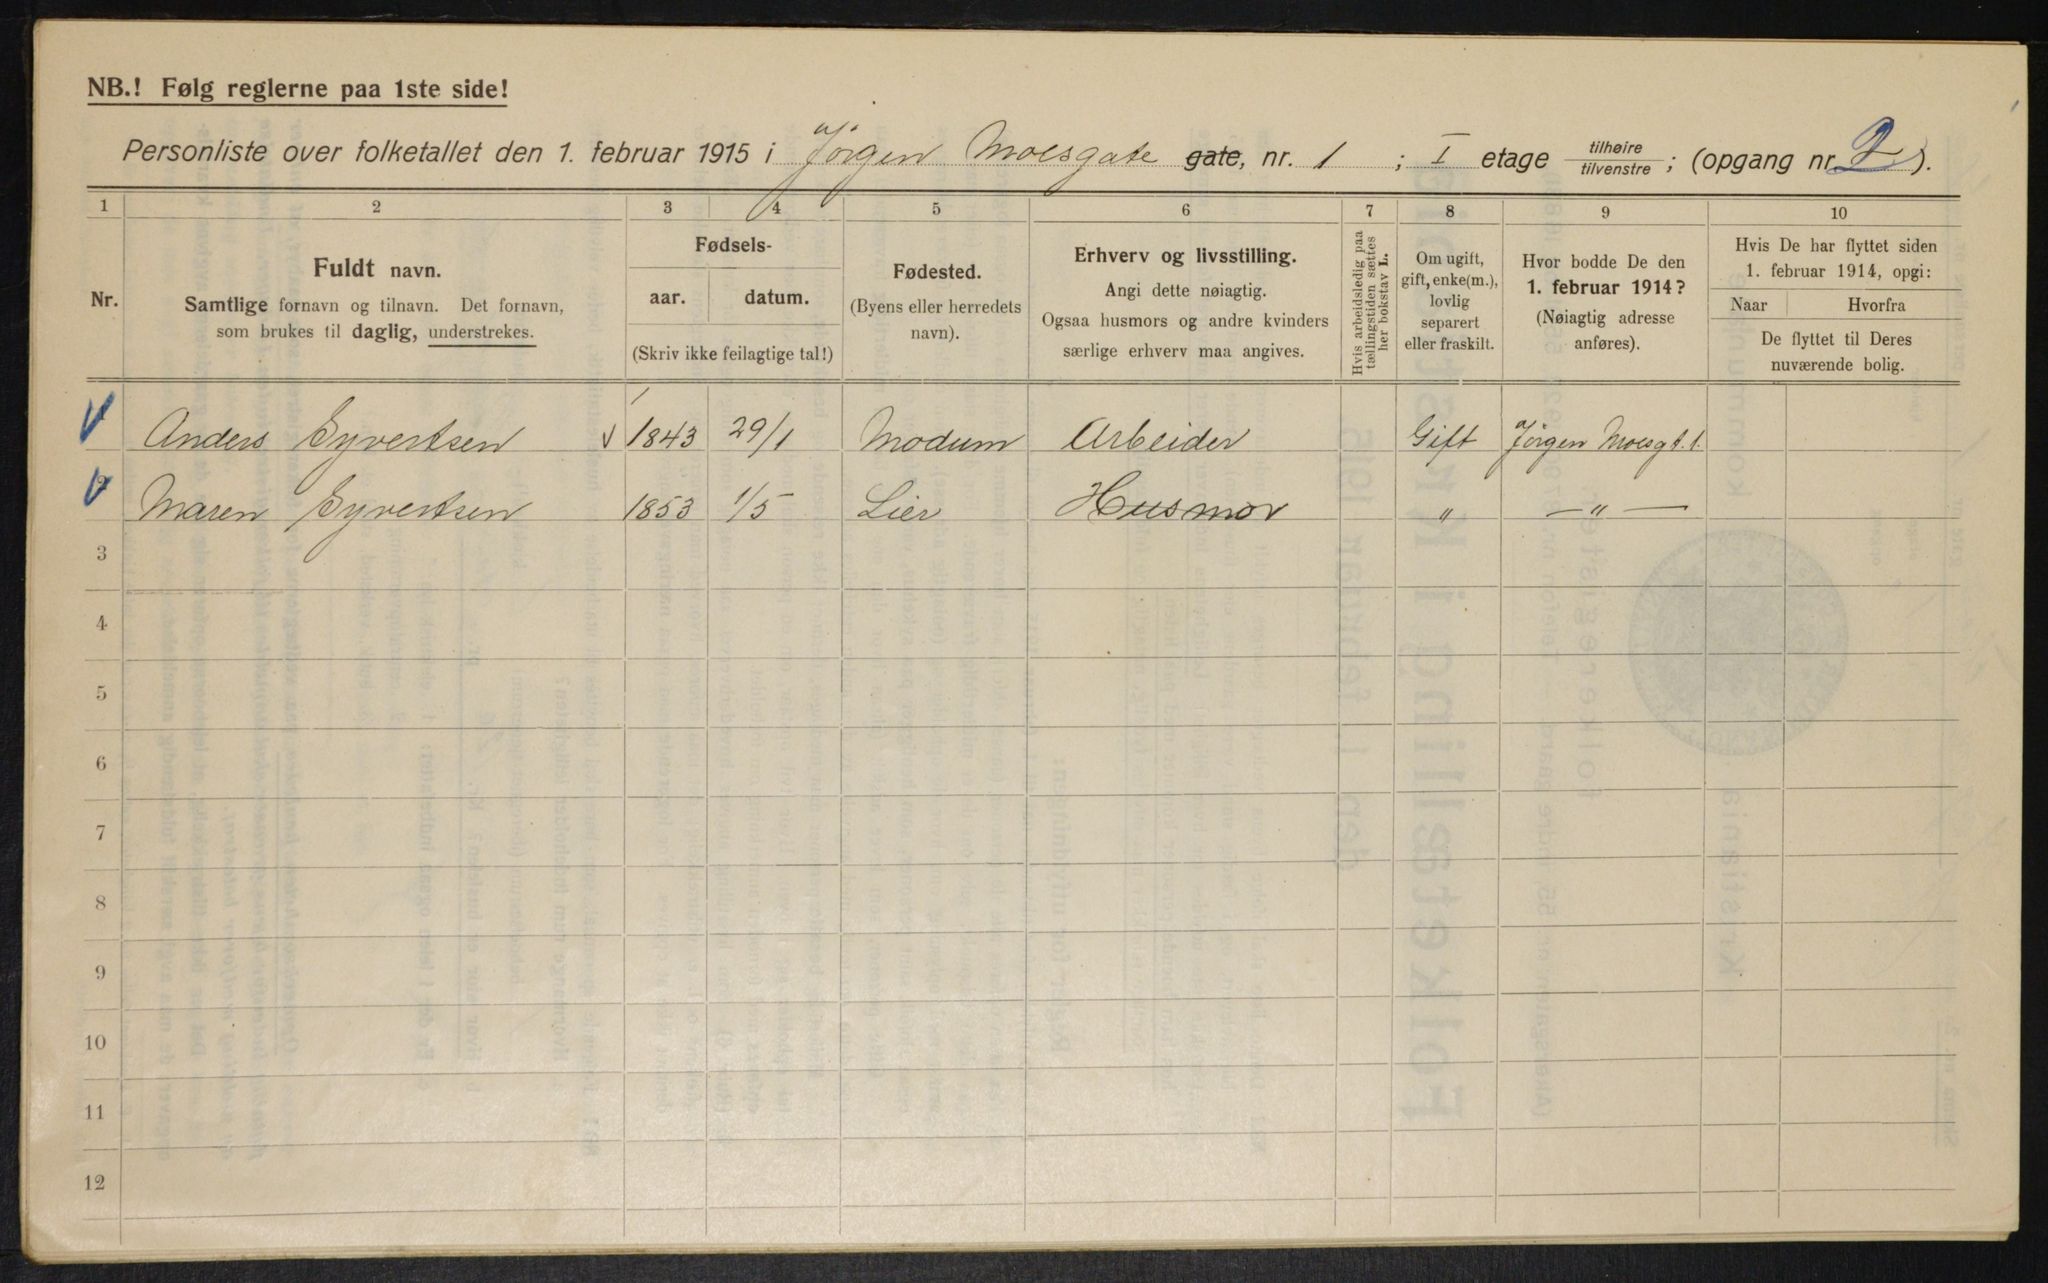 NB.! Følg reglerne paa 1ste side!
Personliste over folketallet den 1. februar 1915 i Jørgen Moesgate gate, nr. 1 ; I etage tilhøire / tilvenstre ; (opgang nr. 2 ).
1 2 3 4 5 6 7 8 9 10
Nr.
Fuldt navn.
Samtlige fornavn og tilnavn. Det fornavn,
som brukes til daglig, understrekes.
Fødsels-
aar. datum.
(Skriv ikke feilagtige tal!)
Fødested.
(Byens eller herredets
navn).
Erhverv og livsstilling.
Angi dette nøiagtig.
Ogsaa husmors og andre kvinders
særlige erhverv maa angives.
Hvis arbeidsledig paa
tællingstiden sættes
her bokstav L.
Om ugift,
gift, enke(m.),
lovlig
separert
eller fraskilt.
Hvor bodde De den
1. februar 1914?
(Nøiagtig adresse
anføres).
Hvis De har flyttet siden
1. februar 1914, opgi:
Naar Hvorfra
De flyttet til Deres
nuværende bolig.
1 Anders Syvertsen 1843 29/1 Modum Arbeider Gift Jørgen Moesgt. 1.
2 Maren Syvertsen 1853 1/5 Lier Husmor " — " —
3
4
5
6
7
8
9
10
11
12